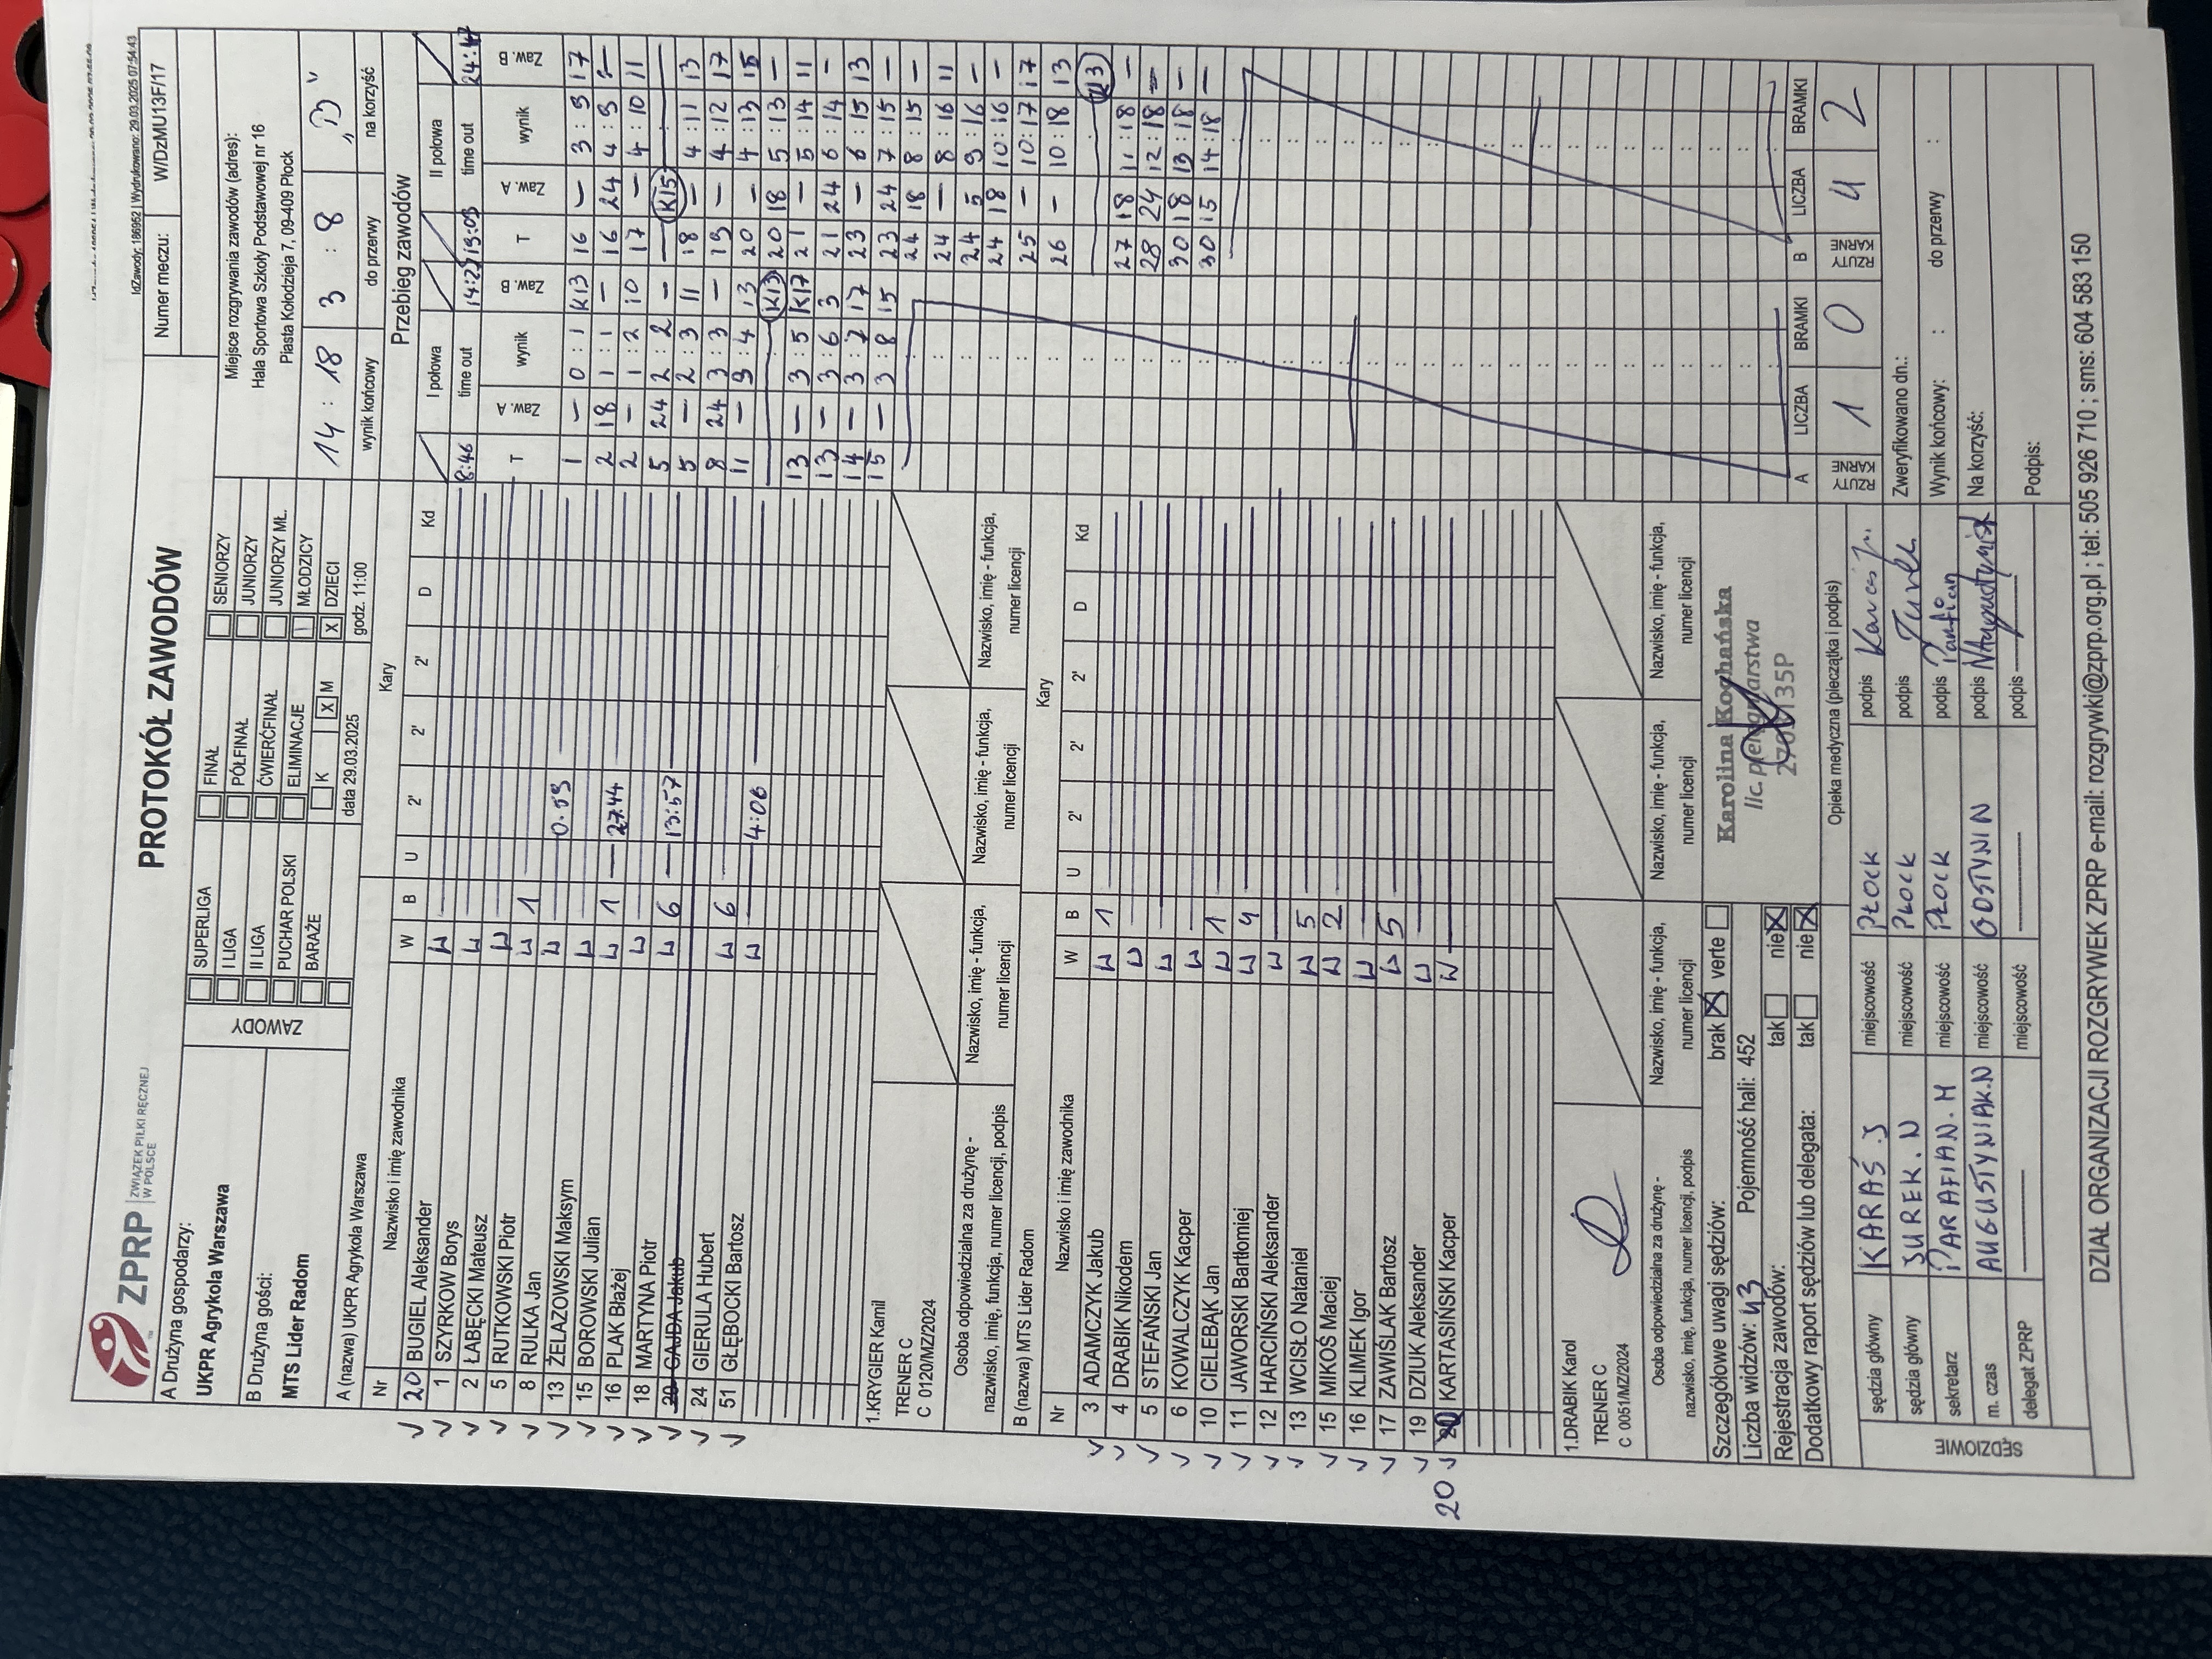 IdZawody: 186952 | Wydrukowano: 29.03.2025 07:54:43
ZPRP ZWIĄZEK PIŁKI RĘCZNEJ W POLSCE
PROTOKÓŁ ZAWODÓW
Numer meczu: W/DzMU13F/17
A Drużyna gospodarzy:
UKPR Agrykola Warszawa
B Drużyna gości:
MTS Lider Radom
ZAWODY
SUPERLIGA FINAŁ SENIORZY
I LIGA PÓŁFINAŁ JUNIORZY
II LIGA ĆWIERĆFINAŁ JUNIORZY MŁ.
PUCHAR POLSKI ELIMINACJE MŁODZICY
BARAŻE K X M X DZIECI
data 29.03.2025 godz. 11:00
Miejsce rozgrywania zawodów (adres):
Hala Sportowa Szkoły Podstawowej nr 16
Piasta Kołodzieja 7, 09-409 Płock
14 : 18 3 : 8 „B”
wynik końcowy do przerwy na korzyść
A (nazwa) UKPR Agrykola Warszawa Kary
Nr Nazwisko i imię zawodnika W B U 2' 2' 2' D Kd
20 BUGIEL Aleksander W
1 SZYRKOW Borys W
2 ŁABĘCKI Mateusz W
5 RUTKOWSKI Piotr W 1
8 RULKA Jan W 0:59
13 ŻELAZOWSKI Maksym W
15 BOROWSKI Julian W 1 27:44
16 PLAK Błażej W
18 MARTYNA Piotr W 6 13:57
20 GAJDA Jakub
24 GIERULA Hubert W 6
51 GŁĘBOCKI Bartosz W 4:06
1.KRYGIER Kamil
TRENER C
C 0120/MZ/2024
Osoba odpowiedzialna za drużynę - nazwisko, imię, funkcja, numer licencji, podpis
Nazwisko, imię - funkcja, numer licencji
Nazwisko, imię - funkcja, numer licencji
Nazwisko, imię - funkcja, numer licencji
B (nazwa) MTS Lider Radom Kary
Nr Nazwisko i imię zawodnika W B U 2' 2' 2' D Kd
3 ADAMCZYK Jakub W 1
4 DRABIK Nikodem W
5 STEFAŃSKI Jan W
6 KOWALCZYK Kacper W
10 CIELEBĄK Jan W 1
11 JAWORSKI Bartłomiej W 4
12 HARCIŃSKI Aleksander W
13 WCISŁO Nataniel W 5
15 MIKOŚ Maciej W 2
16 KLIMEK Igor W
17 ZAWIŚLAK Bartosz W 5
19 DZIUK Aleksander W
20 KARTASIŃSKI Kacper W
1.DRABIK Karol
TRENER C
C 0051/MZ/2024
Osoba odpowiedzialna za drużynę - nazwisko, imię, funkcja, numer licencji, podpis
Nazwisko, imię - funkcja, numer licencji
Nazwisko, imię - funkcja, numer licencji
Nazwisko, imię - funkcja, numer licencji
Przebieg zawodów
I połowa II połowa
8:46 time out 14:27 13:09 time out 24:47
T Zaw. A wynik Zaw. B T Zaw. A wynik Zaw. B
1 – 0 : 1 K13 16 – 3 : 9 17
2 18 1 : 1 – 16 24 4 : 9 –
2 – 1 : 2 10 17 – 4 : 10 11
5 24 2 : 2 – K15
5 – 2 : 3 11 18 – 4 : 11 13
8 24 3 : 3 – 19 – 4 : 12 17
11 – 3 : 4 13 20 – 4 : 13 15
K13 20 18 5 : 13 –
13 – 3 : 5 K17 21 – 5 : 14 11
13 – 3 : 6 3 21 24 6 : 14 –
14 – 3 : 7 17 23 – 6 : 15 13
15 – 3 : 8 15 23 24 7 : 15 –
24 18 8 : 15 –
24 – 8 : 16 11
24 5 9 : 16 –
24 18 10 : 16 –
25 – 10 : 17 17
26 – 10 : 18 13
K13
27 18 11 : 18 –
28 24 12 : 18 –
30 18 13 : 18 –
30 15 14 : 18 –
A LICZBA BRAMKI B LICZBA BRAMKI
RZUTY KARNE 1 0 RZUTY KARNE 4 2
Szczegółowe uwagi sędziów: brak X verte
Liczba widzów: 43 Pojemność hali: 452
Rejestracja zawodów: tak nie X
Dodatkowy raport sędziów lub delegata: tak nie X
Karolina Kochańska
lic. pielęgniarstwa
Opieka medyczna (pieczątka i podpis)
SĘDZIOWIE
sędzia główny KARAŚ.J miejscowość PŁOCK podpis
sędzia główny SUREK.N miejscowość PŁOCK podpis
sekretarz PARAFIAN.M miejscowość PŁOCK podpis Parafian
m. czas AUGUSTYNIAK.N miejscowość GOSTYNIN podpis NAugustyniak
delegat ZPRP miejscowość podpis
Zweryfikowano dn.:
Wynik końcowy: : do przerwy :
Na korzyść:
Podpis:
DZIAŁ ORGANIZACJI ROZGRYWEK ZPRP e-mail: rozgrywki@zprp.org.pl ; tel: 505 926 710 ; sms: 604 583 150